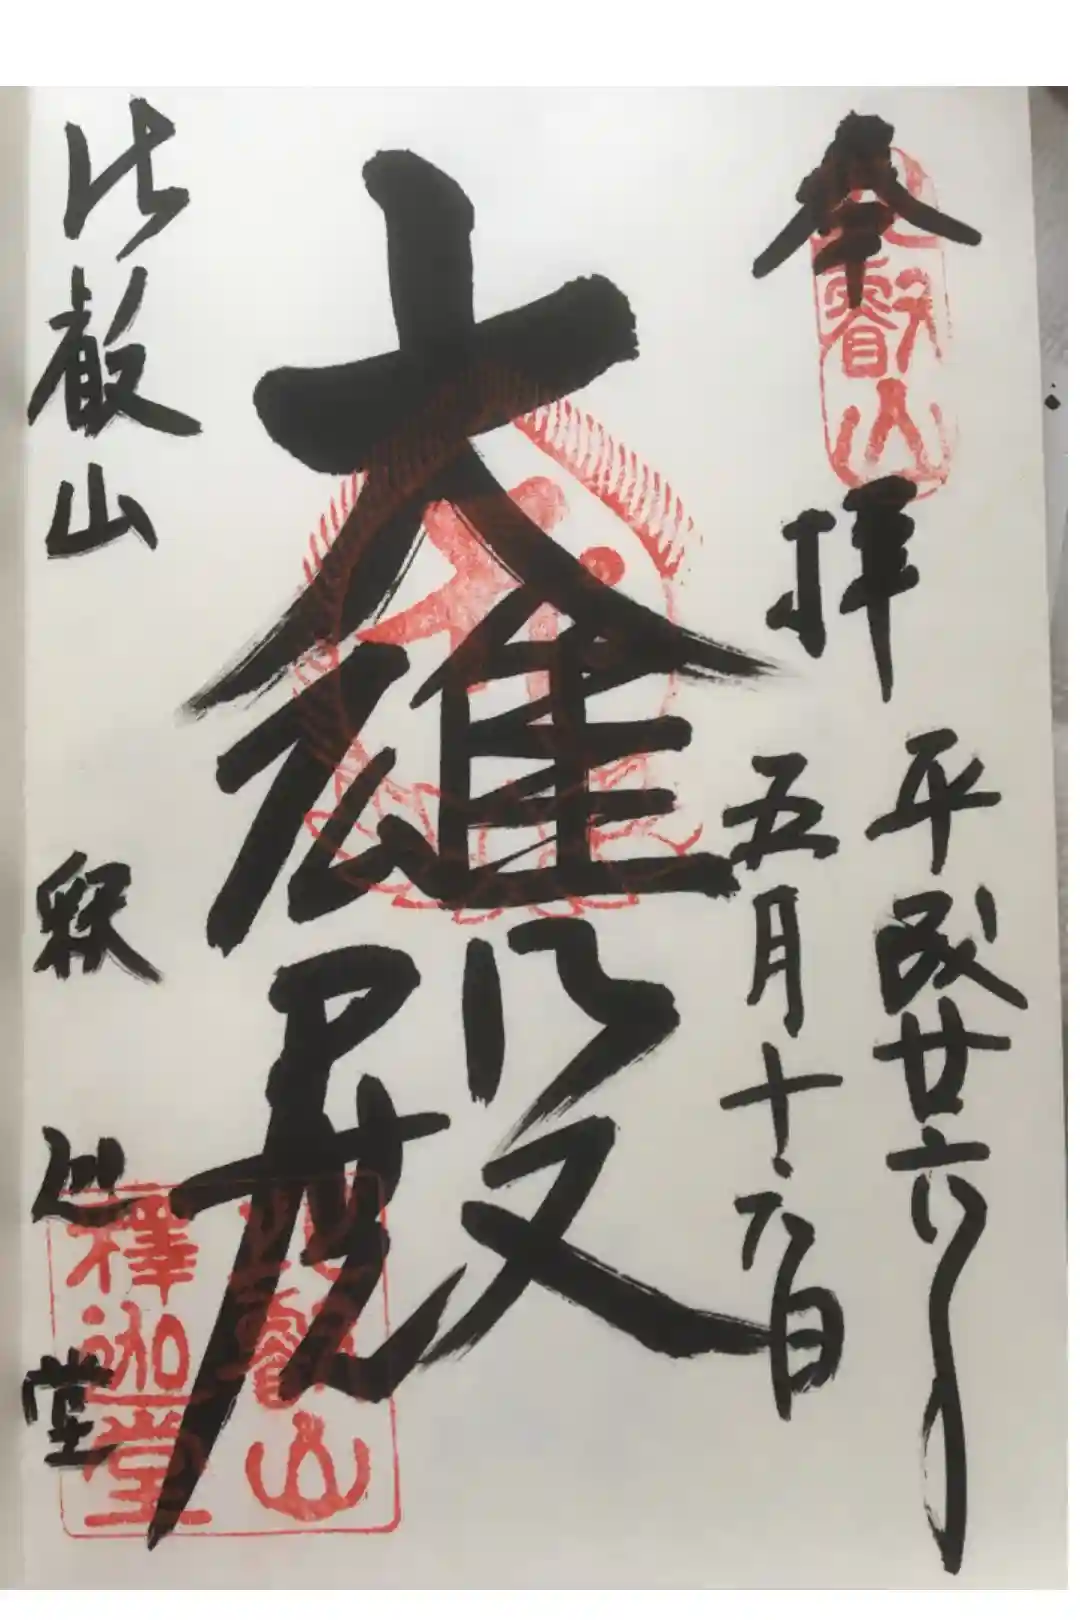 奉拝
平成廿六年
五月十六日
大雄殿
比叡山
釈迦堂
比叡山
比叡山
釋迦堂